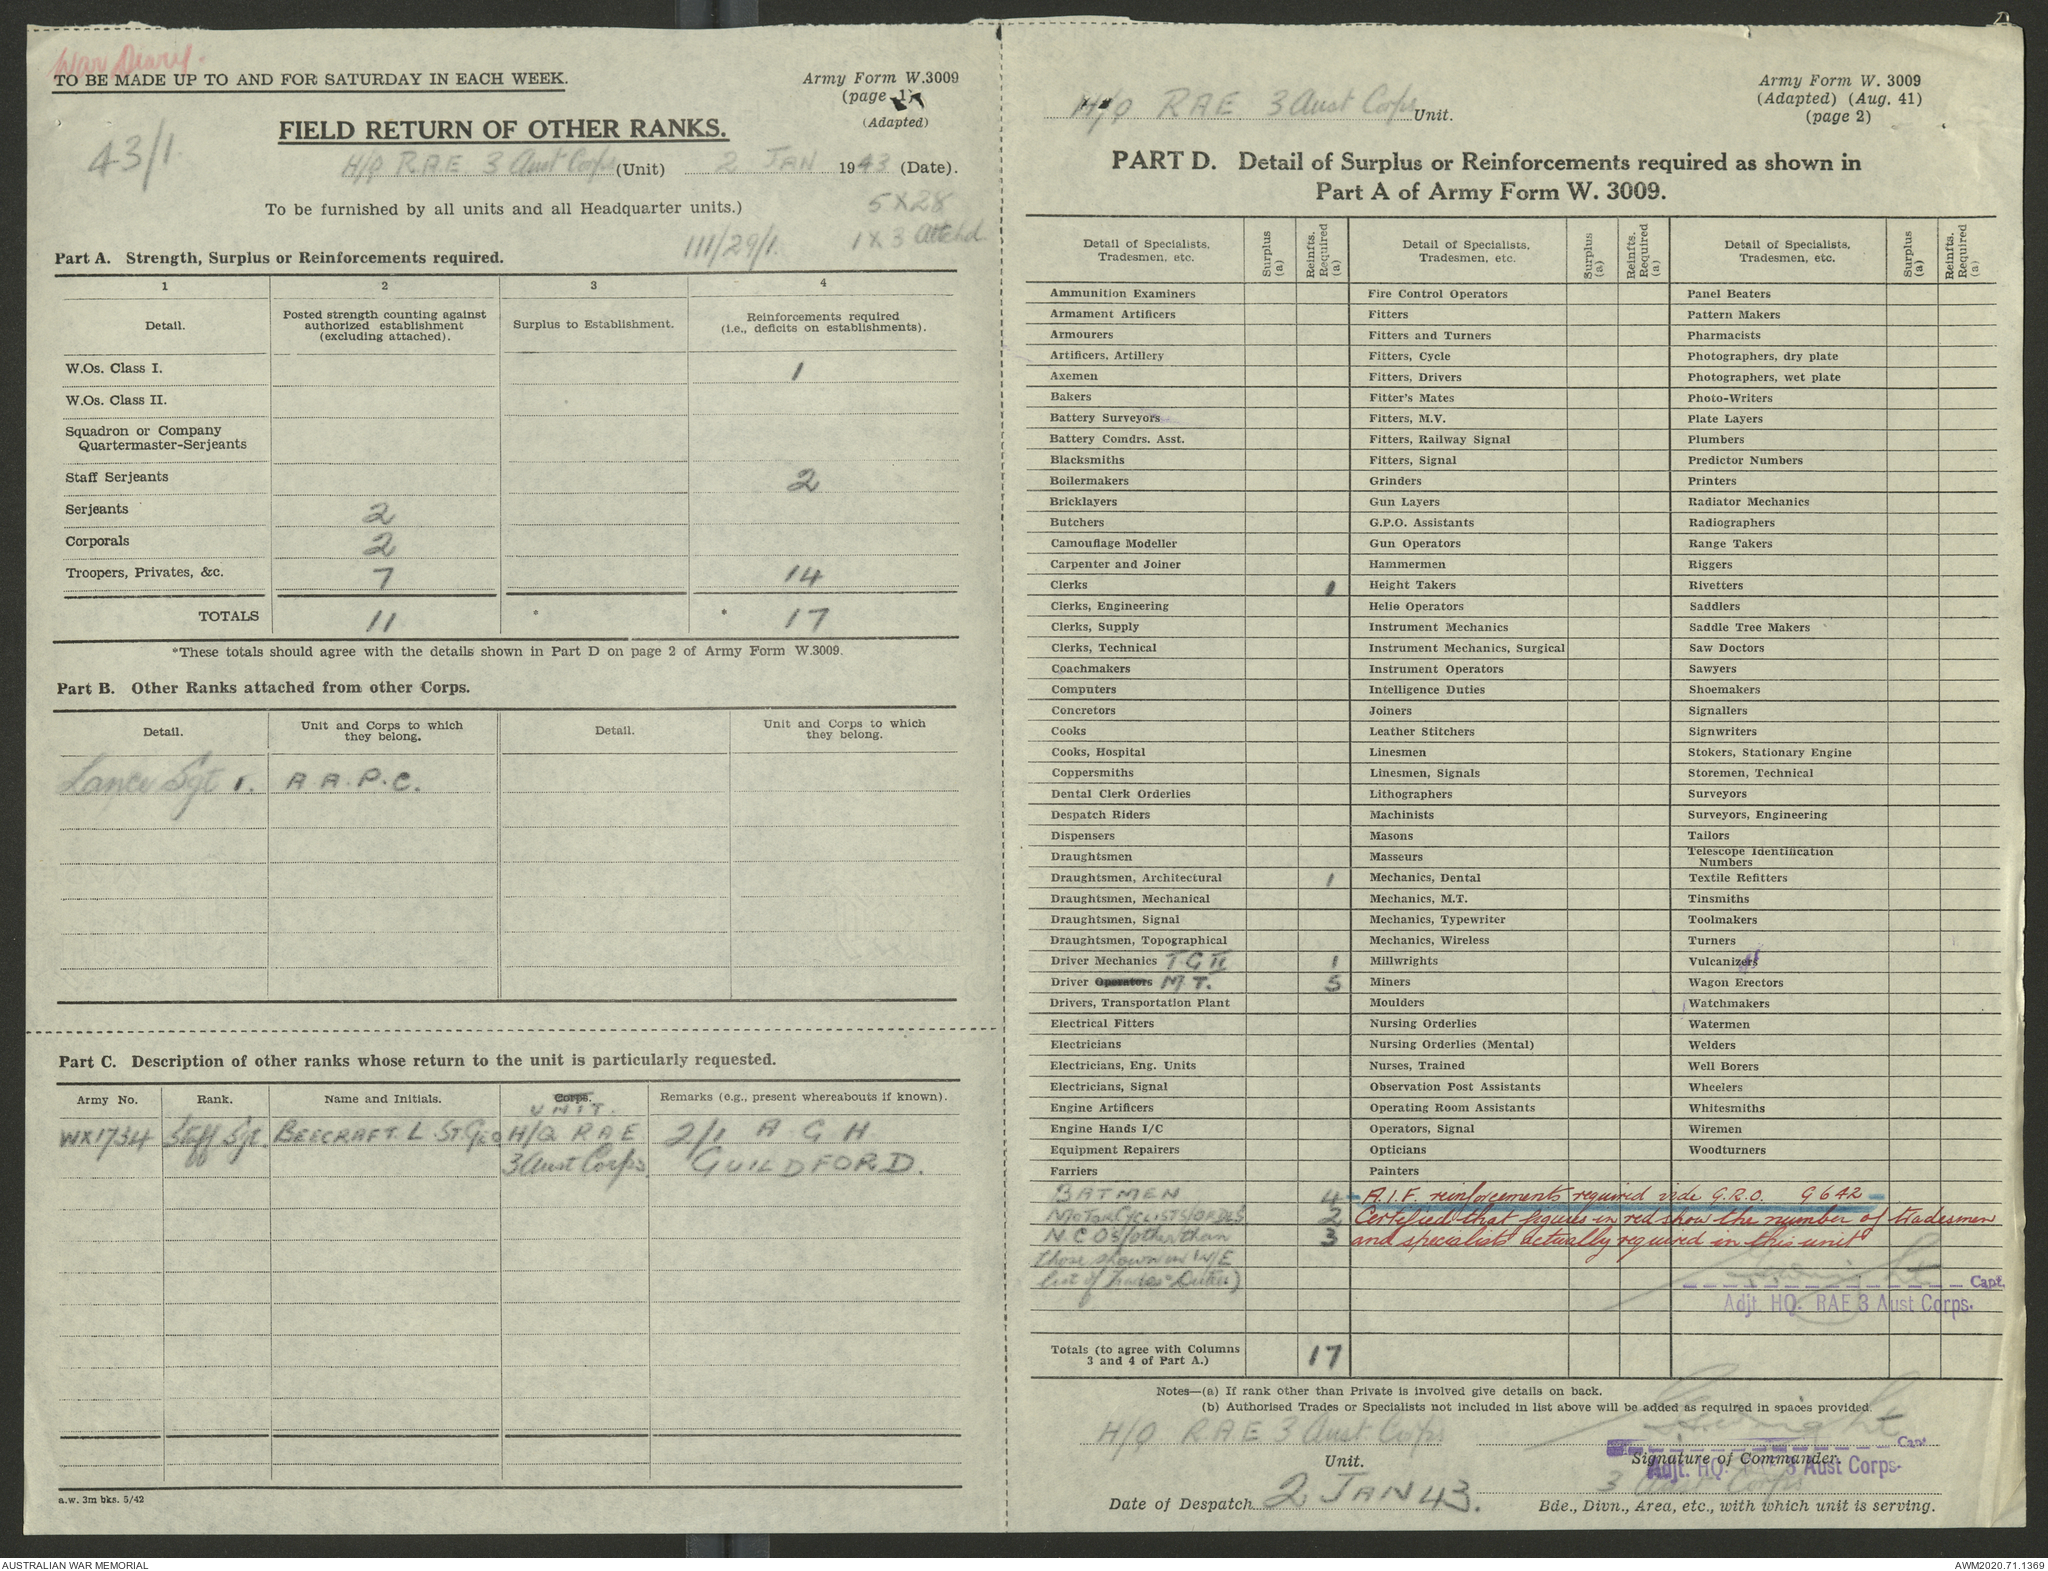 War Diary.
TO BE MADE UP TO AND FOR SATURDAY IN EACH WEEK.
Army Form W.3009
(page 1)
(Adapted)
43/1
FIELD RETURN OF OTHER RANKS.
H/Q RAE 3 Aust Corps (Unit) 2 JAN 1943 (Date).
To be furnished by all units and all Headquarter units.)
5 X 28
1 X 3 Attchd
111/29/1.
Part A. Strength, Surplus or Reinforcements required.
1 2 3 4
Detail. Posted strength counting against authorized establishment (excluding attached). Surplus to Establishment. Reinforcements required (i.e., deficits on establishments).
W.Os. Class I. 1
W.Os. Class II.
Squadron or Company
Quartermaster-Serjeants
Staff Serjeants 2
Serjeants 2
Corporals 2
Troopers, Privates, &c. 7 14
TOTALS 11 * * 17
*These totals should agree with the details shown in Part D on page 2 of Army Form W.3009.
Part B. Other Ranks attached from other Corps.
Detail. Unit and Corps to which they belong. Detail. Unit and Corps to which they belong.
Lance Sgt 1. A A.P.C.
Part C. Description of other ranks whose return to the unit is particularly requested.
Army No. Rank. Name and Initials. Corps. Remarks (e.g., present whereabouts if known).
UNIT.
WX1734 Staff Sgt. BEECRAFT. L. ST.GEO H/Q RAE 2/1 A G H
3 Aust Corps. GUILDFORD.
a.w. 3m bks. 5/42
Army Form W. 3009
(Adapted) (Aug. 41)
(page 2)
H/Q RAE 3 Aust Corps Unit.
PART D. Detail of Surplus or Reinforcements required as shown in
Part A of Army Form W. 3009.
Detail of Specialists, Tradesmen, etc. Surplus (a) Reinfts. Required (a) Detail of Specialists, Tradesmen, etc. Surplus (a) Reinfts. Required (a) Detail of Specialists, Tradesmen, etc. Surplus (a) Reinfts. Required (a)
Ammunition Examiners Fire Control Operators Panel Beaters
Armament Artificers Fitters Pattern Makers
Armourers Fitters and Turners Pharmacists
Artificers, Artillery Fitters, Cycle Photographers, dry plate
Axemen Fitters, Drivers Photographers, wet plate
Bakers Fitter's Mates Photo-Writers
Battery Surveyors Fitters, M.V. Plate Layers
Battery Comdrs. Asst. Fitters, Railway Signal Plumbers
Blacksmiths Fitters, Signal Predictor Numbers
Boilermakers Grinders Printers
Bricklayers Gun Layers Radiator Mechanics
Butchers G.P.O. Assistants Radiographers
Camouflage Modeller Gun Operators Range Takers
Carpenter and Joiner Hammermen Riggers
Clerks 1 Height Takers Rivetters
Clerks, Engineering Helio Operators Saddlers
Clerks, Supply Instrument Mechanics Saddle Tree Makers
Clerks, Technical Instrument Mechanics, Surgical Saw Doctors
Coachmakers Instrument Operators Sawyers
Computers Intelligence Duties Shoemakers
Concretors Joiners Signallers
Cooks Leather Stitchers Signwriters
Cooks, Hospital Linesmen Stokers, Stationary Engine
Coppersmiths Linesmen, Signals Storemen, Technical
Dental Clerk Orderlies Lithographers Surveyors
Despatch Riders Machinists Surveyors, Engineering
Dispensers Masons Tailors
Draughtsmen Masseurs Telescope Identification Numbers
Draughtsmen, Architectural 1 Mechanics, Dental Textile Refitters
Draughtsmen, Mechanical Mechanics, M.T. Tinsmiths
Draughtsmen, Signal Mechanics, Typewriter Toolmakers
Draughtsmen, Topographical Mechanics, Wireless Turners
Driver Mechanics T G II 1 Millwrights Vulcanizers
Driver Operators M.T. 5 Miners Wagon Erectors
Drivers, Transportation Plant Moulders Watchmakers
Electrical Fitters Nursing Orderlies Watermen
Electricians Nursing Orderlies (Mental) Welders
Electricians, Eng. Units Nurses, Trained Well Borers
Electricians, Signal Observation Post Assistants Wheelers
Engine Artificers Operating Room Assistants Whitesmiths
Engine Hands I/C Operators, Signal Wiremen
Equipment Repairers Opticians Woodturners
Farriers Painters
BATMEN 4 A.I.F. reinforcements required vide G.R.O. G 642
MOTOR CYCLISTS/ORDLS 2 Certified that figures in red show the number of tradesmen
N.C.OS (other than 3 and specialists actually required in this unit
those shown in W/E
list of Trades Duties)
Capt.
Adjt. HQ. RAE 3 Aust Corps.
Totals (to agree with Columns 3 and 4 of Part A.) 17
Notes—(a) If rank other than Private is involved give details on back.
(b) Authorised Trades or Specialists not included in list above will be added as required in spaces provided.
H/Q RAE 3 Aust Corps
Unit.
Capt
Signature of Commander.
Adjt. HQ. 3 Aust Corps.
3 Aust Corps
Date of Despatch 2 JAN 43.
Bde., Divn., Area, etc., with which unit is serving.
AUSTRALIAN WAR MEMORIAL
AWM2020.71.1369